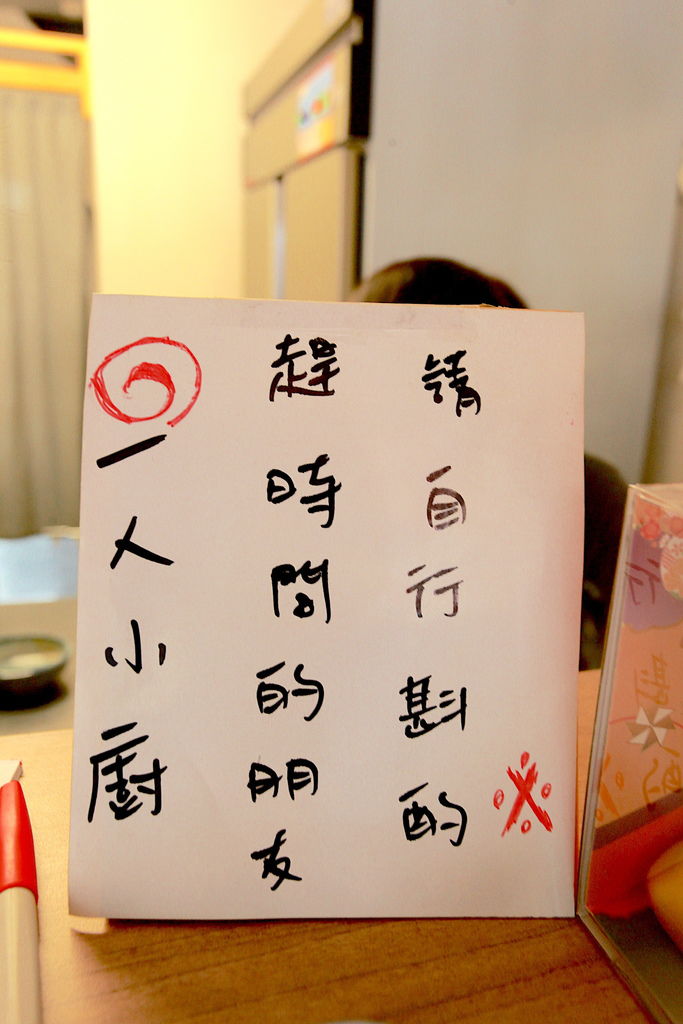 ◎一人小廚
趕時間的朋友
請自行斟酌※